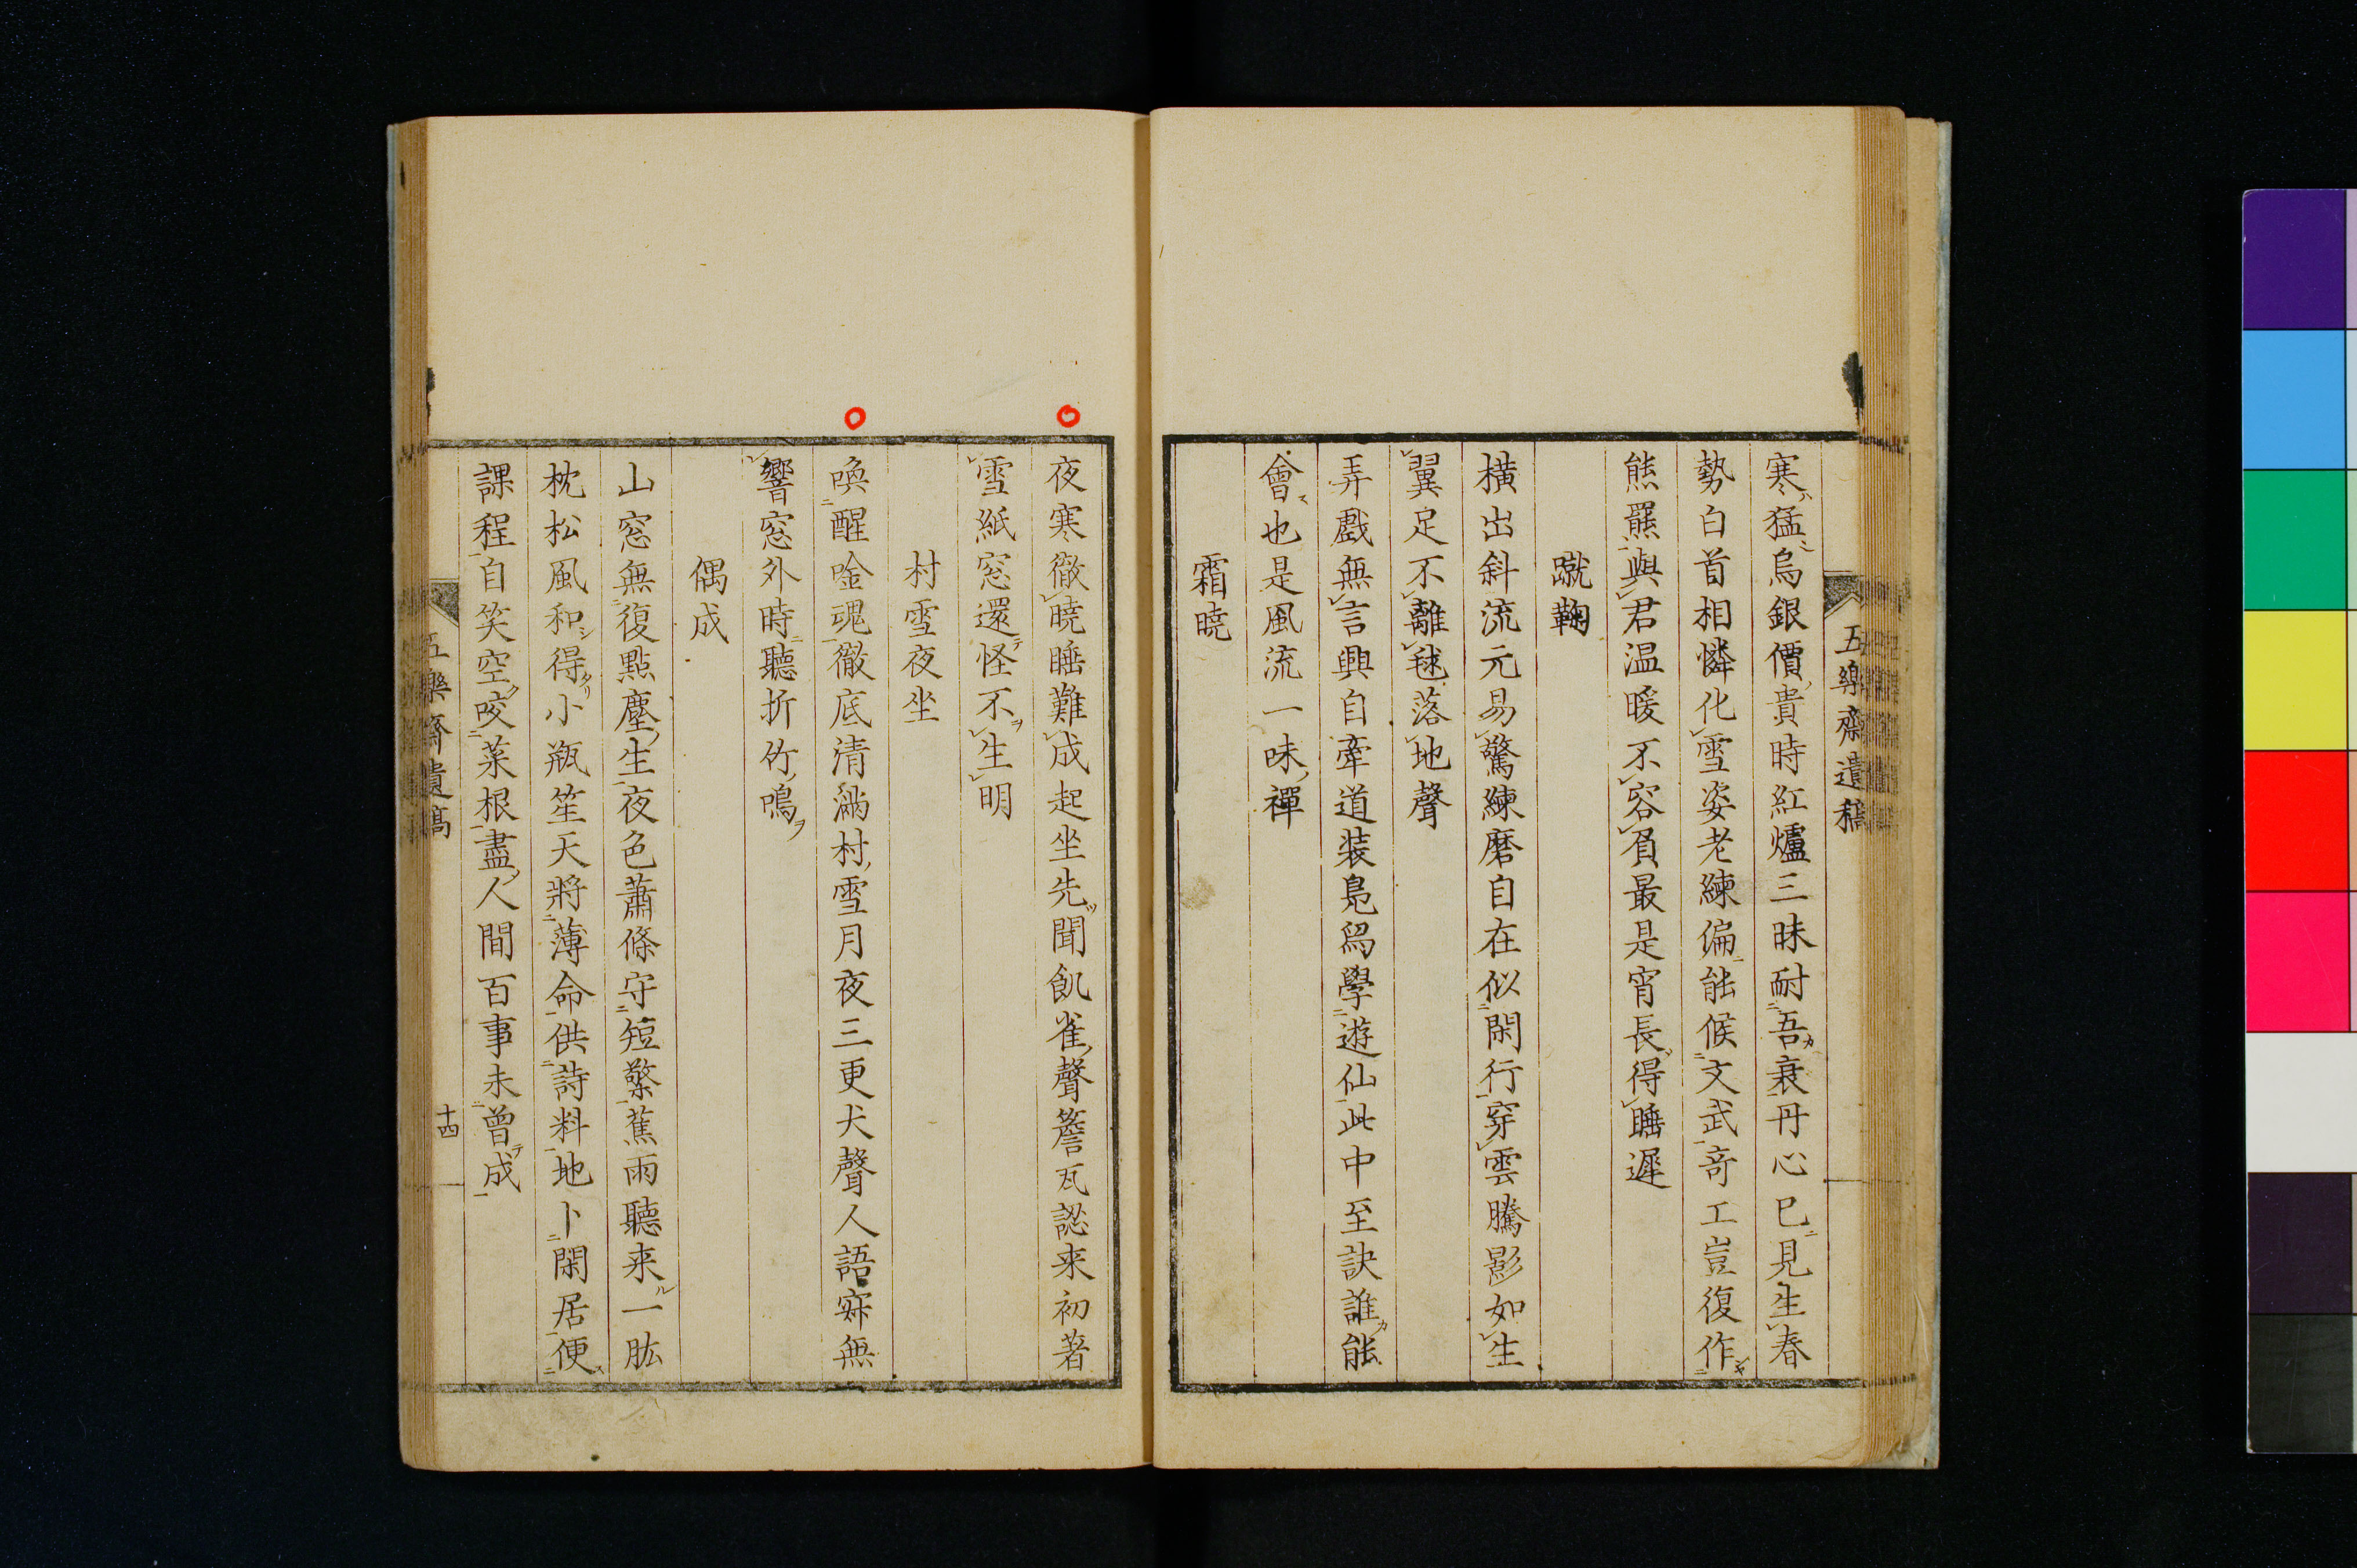 五樂齋遺稿
寒猛烏銀價貴時紅爐三昧耐吾衰丹心已見生春
勢白首相憐化雪姿老練偏能候文武竒工豈復作
熊羆與君温暖不容負最是宵長得睡遲
蹴鞠
橫出斜流元易驚練磨自在似閑行穿雲騰影如生
翼足不離毬落地聲
弄戲無言興自牽道裝鳧舄學遊仙此中至訣誰能
會也是風流一味禪
霜曉
夜寒徹曉睡難成起坐先聞飢雀聲簷瓦認来初著
雪紙窓還怪不生明
村雪夜坐
喚醒唫魂徹底清滿村雪月夜三更犬聲人語寂無
響窓外時聽折竹鳴
偶成
山窓無復點塵生夜色蕭條守短檠蕉雨聽来一肱
枕松風和得小瓶笙天將薄命供詩料地卜閑居便
課程自笑空咬菜根盡人間百事未曾成
五樂齋遺稿
十四